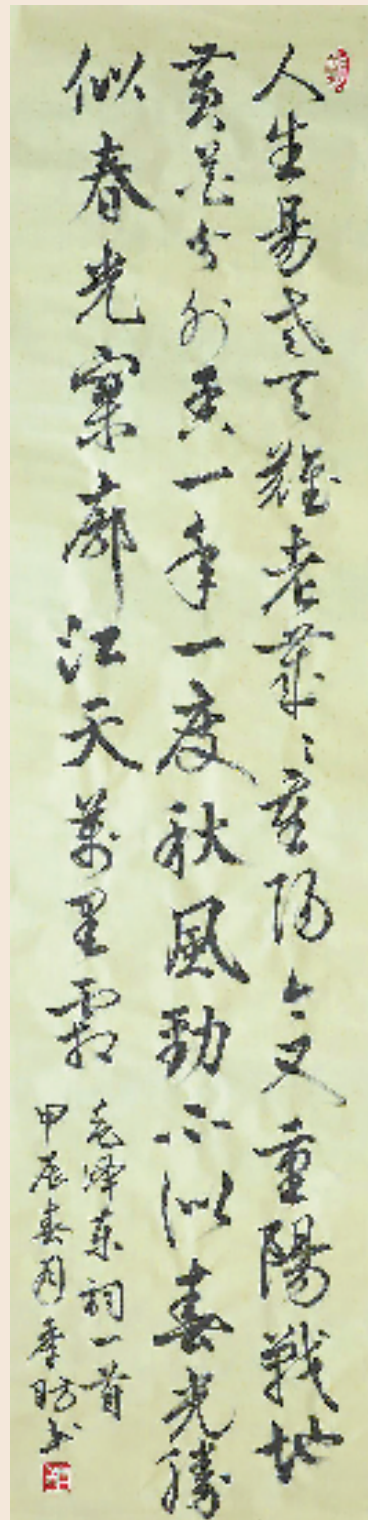 人生易老天難老歲〻重陽今又重陽戰地
黄花分外香一年一度秋風勁不似春光勝
似春光寥廓江天萬里霜
毛泽东詞一首
甲辰春月季昉书